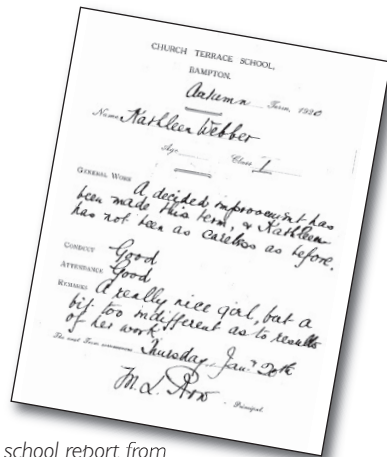 CHURCH TERRACE SCHOOL,
BAMPTON.
Autumn Term, 1920
Name Kathleen Webber
Age Class 1
GENERAL WORK A decided improvement has
been made this term, & Kathleen
has not been as careless as before.
CONDUCT Good
ATTENDANCE Good
REMARKS A really nice girl, but a
bit too indifferent as to results
of her work.
The next Term commences Thursday, Jan. 20th
M. L. Principal.
school report from